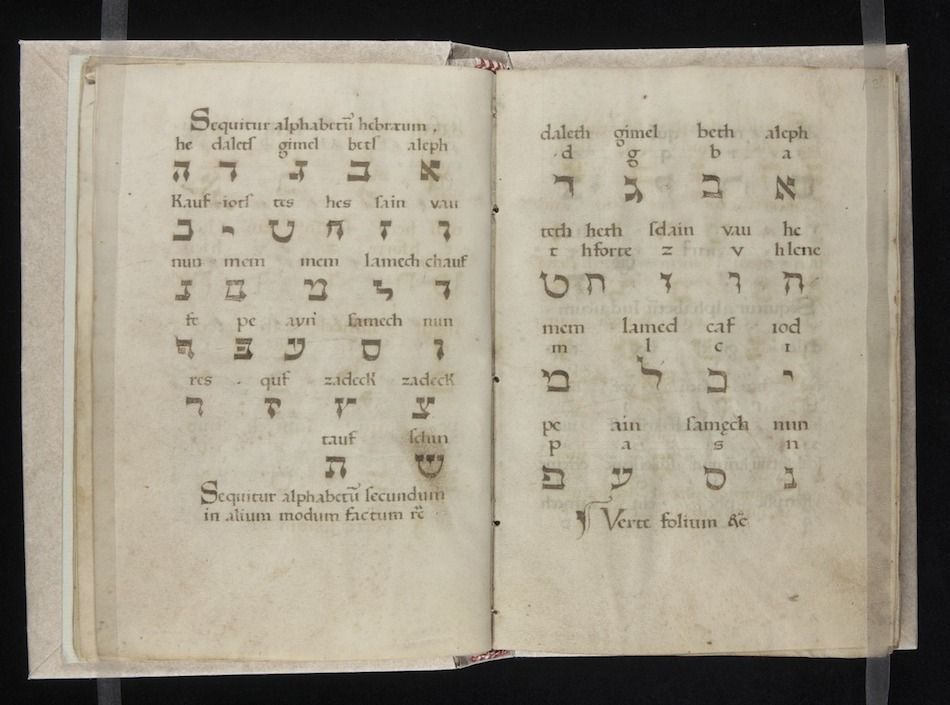 Sequitur alphabetū hebræum .
he daletſ gimel betſ aleph
א ב ג ד ה
Kauf iotſ tes hes ſain vau
ו ז ח ט י כ
nun mem mem lamech chauf
ך ל מ ם נ
fe pe ayn ſamech nun
ן ס ע פ ף
res . quf zadeck zadeck
צ ץ ק ר
tauf ſchin
ש ת
Sequitur alphabetū ſecundum
in alium modum factum ꝛc̃
daleth gimel beth aleph
d g b a
א ב ג ד
teth heth ſdain vau he
t hforte z v hlene
ה ו ז ח ט
mem lamed caf iod
m l c i
י כ ל מ
pe ain ſamęch nun
p a s n
נ ס ע פ
Verte folium ⁊c̃